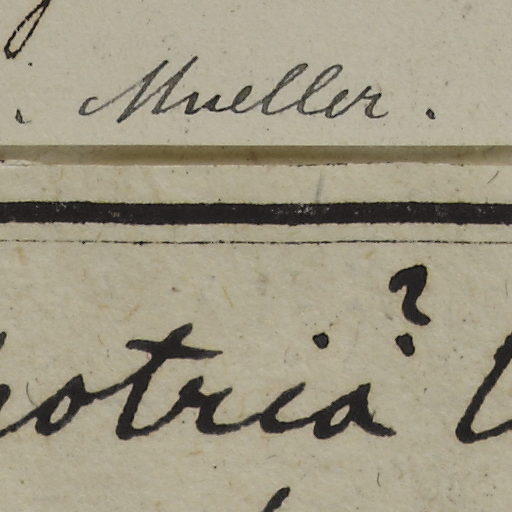 . Mueller .
hotria?